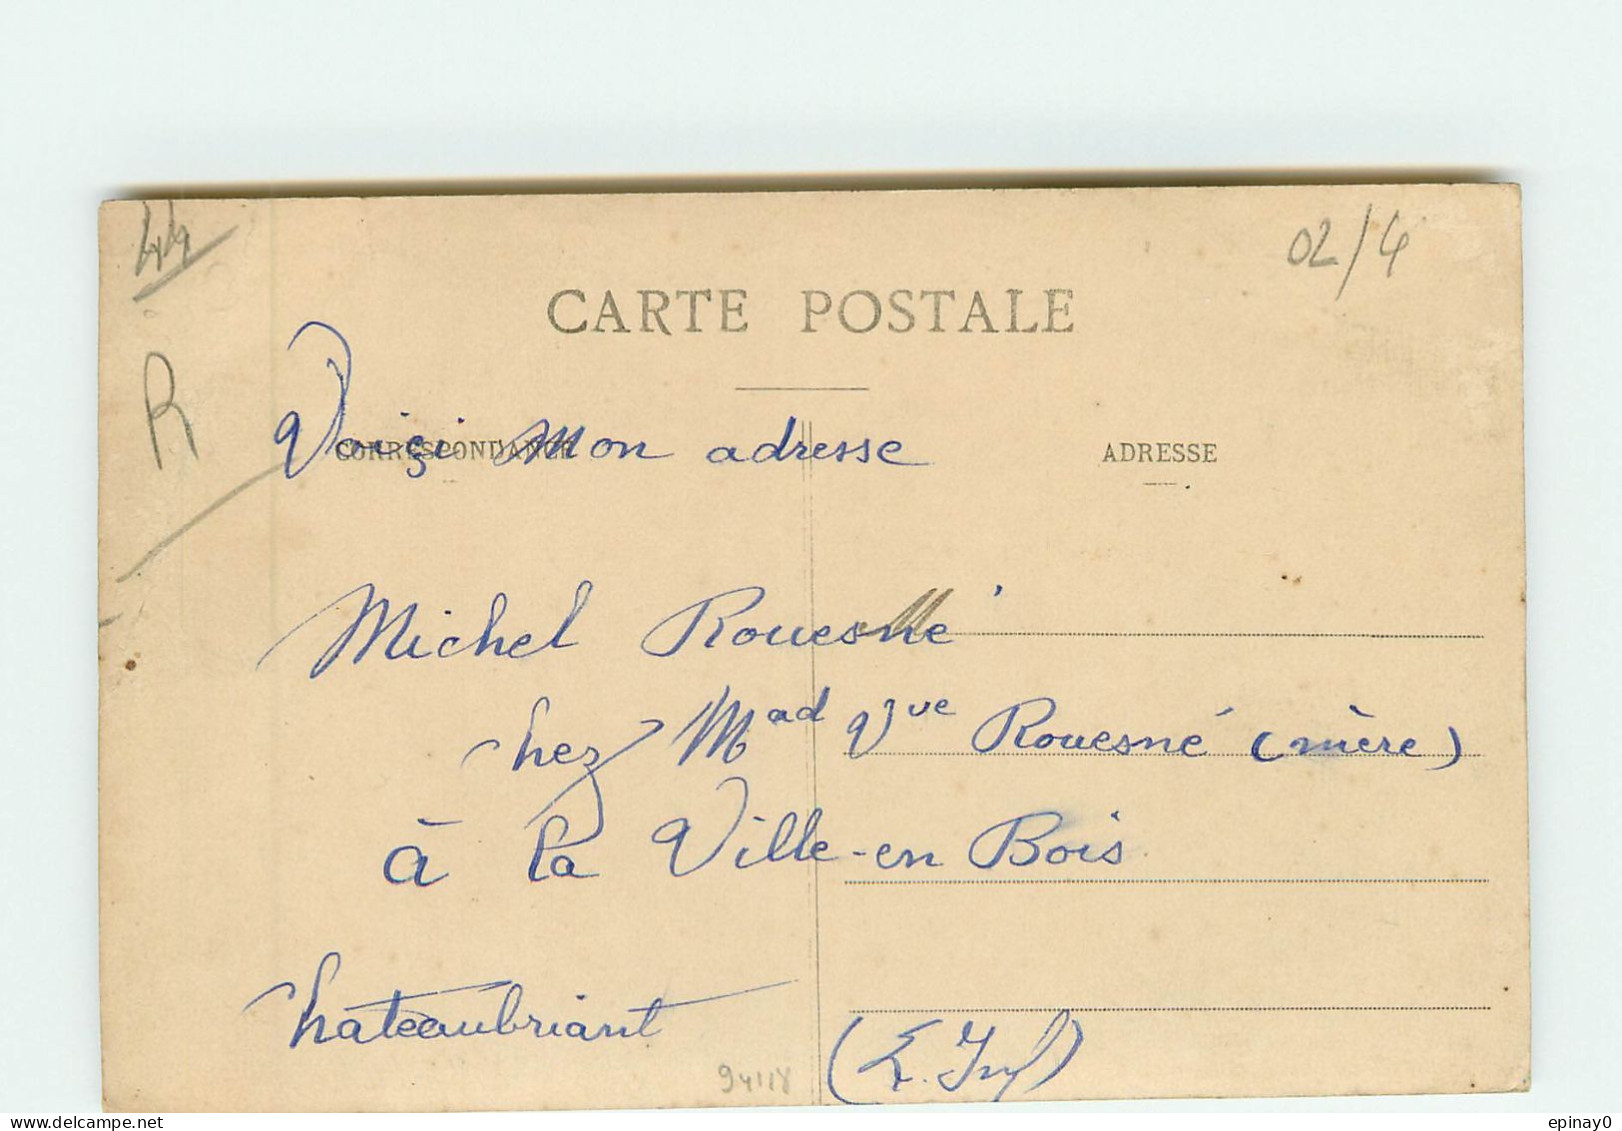 44
02/4
CARTE POSTALE
R
Voiçi Mon adresse
CORRESPONDANCE
ADRESSE
Michel Rouesné
chez Mad Vue Rouesné (mère)
à la Ville-en Bois
Chateaubriant
(L. Inf)
94118
epinay0